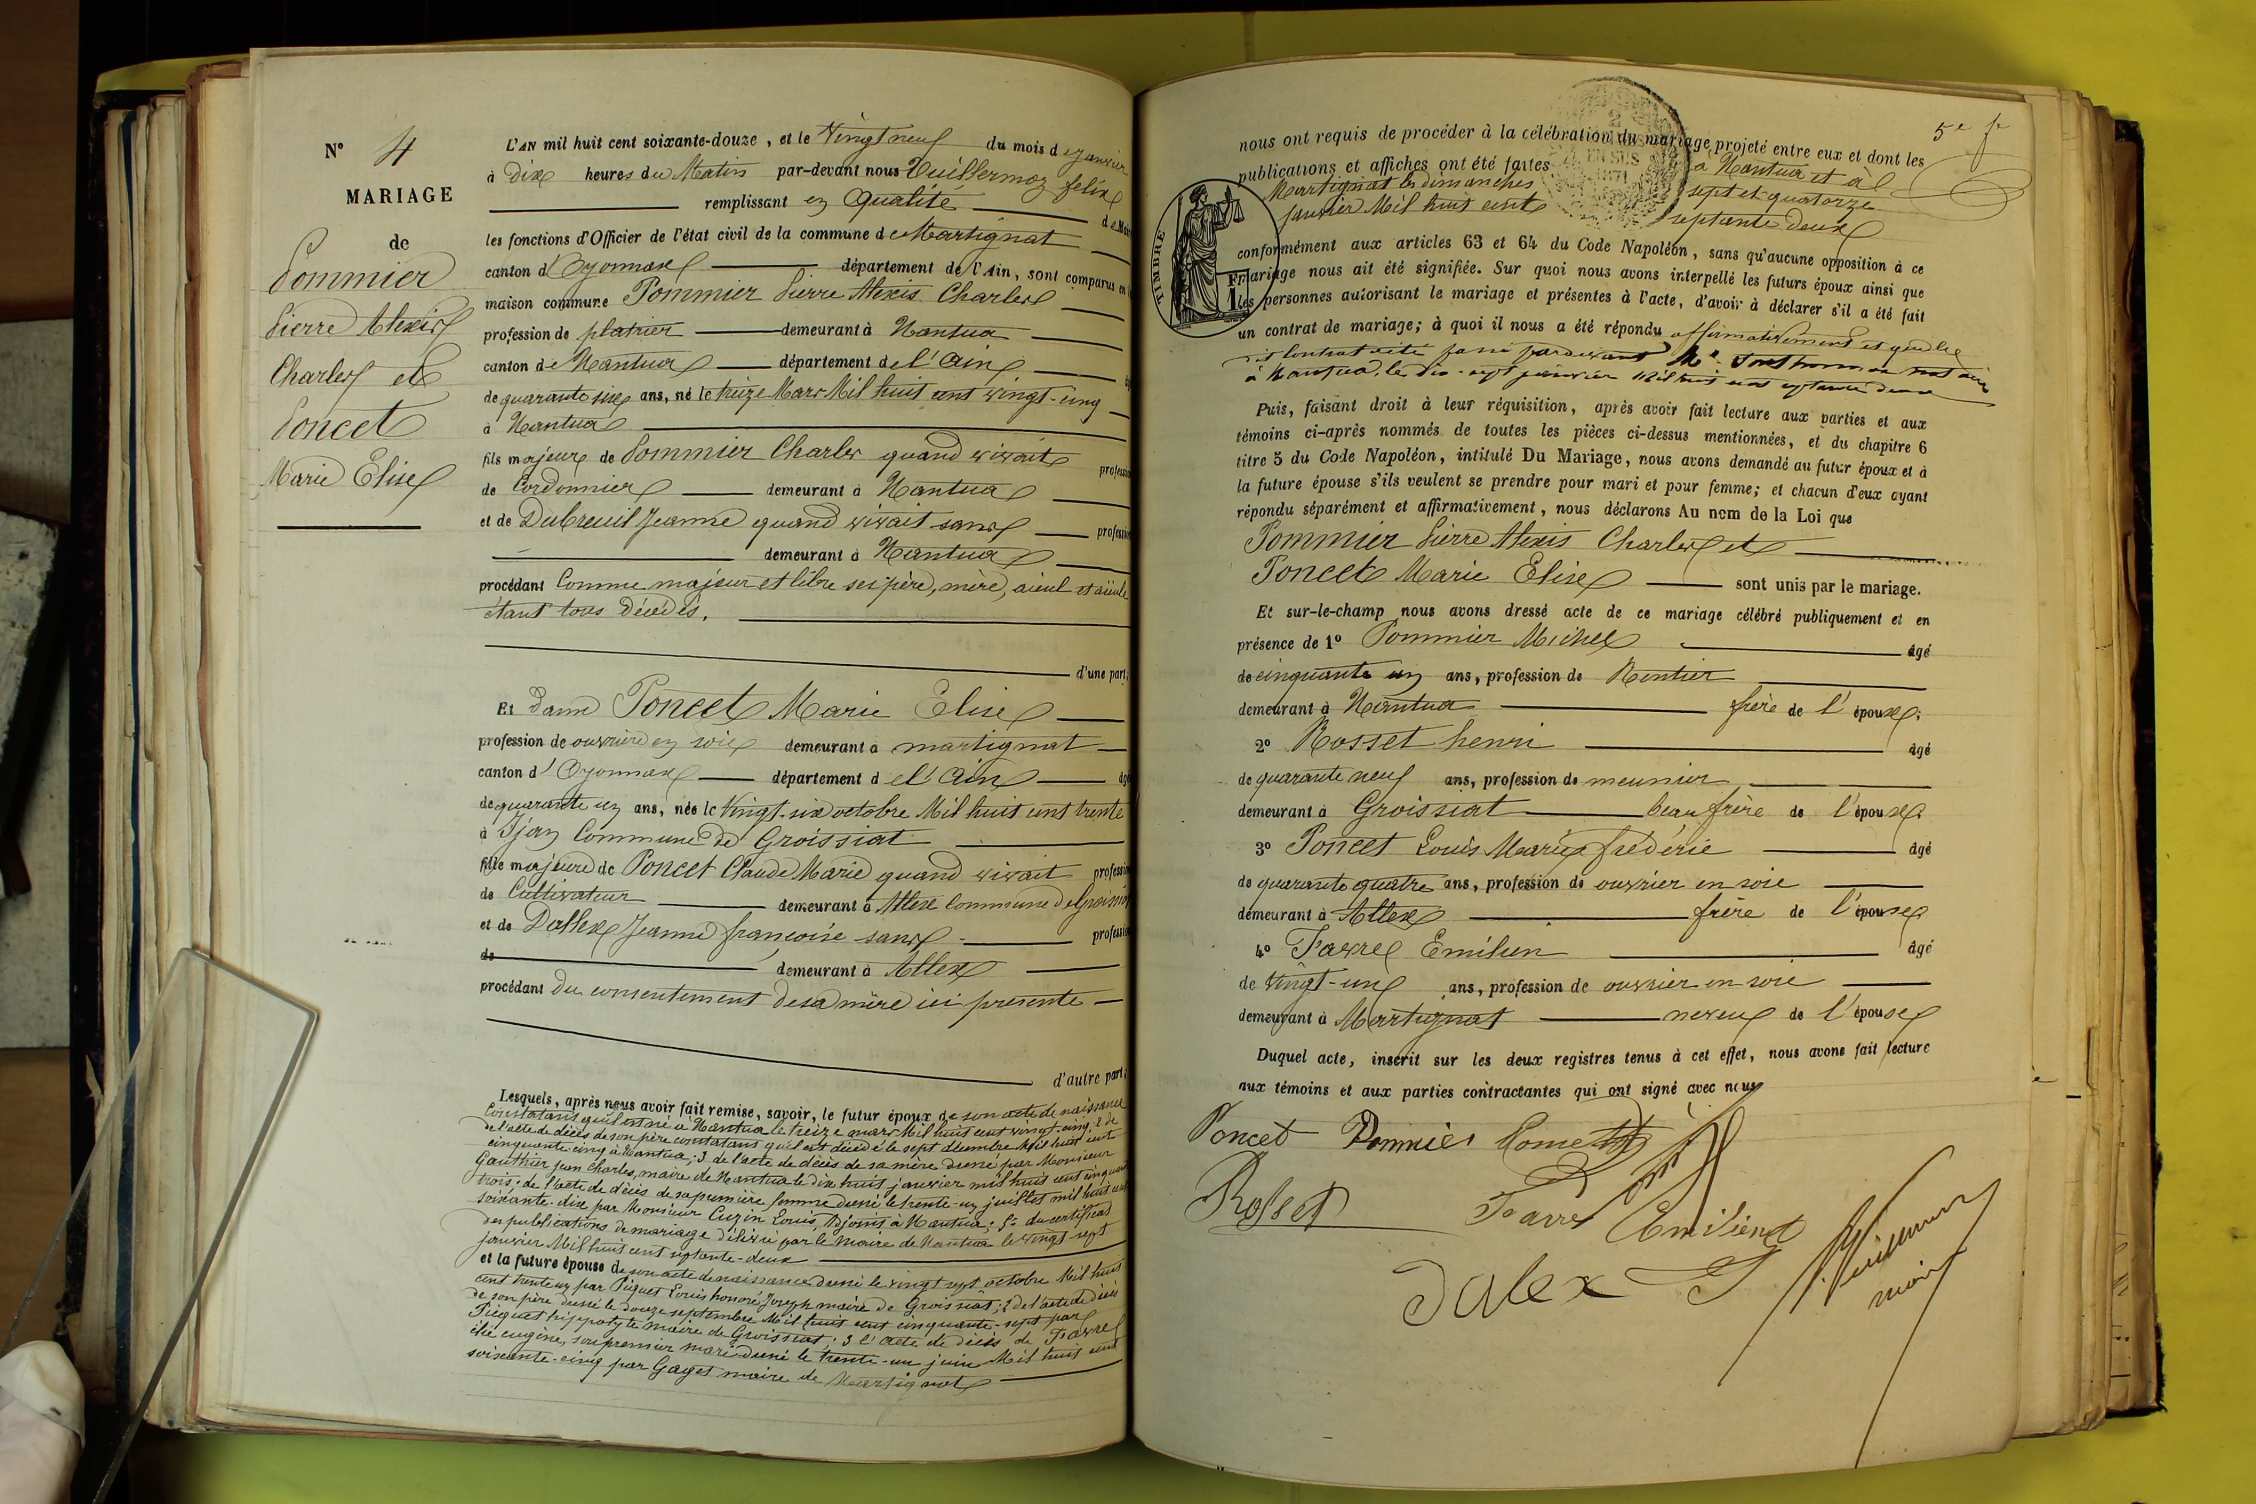 N° 4
MARIAGE
de
Pommier
Pierre Alexis
Charles et
Poncet
Marie Elise
L'AN mil huit cent soixante-douze, et le Vingt neuf du mois de janvier
à dix heures du Matin par-devant nous Vuillermoz felix
remplissant en qualité de Mai
les fonctions d'Officier de l'état civil de la commune de Martignat
canton d'Oyonnax département de l'Ain, sont comparus en
maison commune Pommier Pierre Alexis Charles
profession de platrier demeurant à Nantua
canton de Nantua département de l'Ain
de quarante six ans, né le treize Mars Mil huit cent vingt-cinq
à Nantua
fils majeur de Pommier Charles quand vivait profession
de Cordonnier demeurant à Nantua
et de Dubreuil Jeanne quand vivait sans profession
demeurant à Nantua
procédant Comme majeur et libre ses père, mère, aieul et aieule
étant tous décédés.
d'une part;
Et Dame Poncet Marie Elise
profession de ouvrière en soie demeurant à martignat
canton d'Oyonnax département de l'Ain âgé
de quarante un ans, née le Vingt-six octobre Mil huit cent trente
à Ijean Commune de Groissiat
fille majeure de Poncet Claude Marie quand vivait profession
de Cultivateur demeurant à Allex Commune de Groissiat
et de Dallex Jeanne françoise sans profession
de demeurant à Allex
procédant du consentement de sa mère ici presente
d'autre part;
Lesquels, après nous avoir fait remise, savoir, le futur époux de son acte de naissance
Constatant qu'il est né à Nantua le treize mars Mil huit cent vingt-cinq; 2 de
de l'acte de décès de son père constatant qu'il est décédé le sept décembre Mil huit cent
cinquante-cinq à Nantua; 3 de l'acte de décès de sa mère dressé par Monsieur
Gauthier jean Charles, maire de Nantua le dix huit janvier mil huit cent cinquante
trois: de l'acte de décès de sa première femme dressé le trente-un juillet mil huit cent
soixante-dix par Monsieur Cuzin Louis, Adjoint à Nantua; 5° du certificat
des publications de mariage délivré par le Maire de Nantua le vingt-sept
janvier Mil huit cent septante-deux
et la future épouse de son acte de naissance dressé le vingt sept octobre Mil huit
cent trente un par Piquet Louis honoré Joseph maire de Groissiat; 2 de l'acte de décès
de son père dressé le douze septembre Mil huit cent cinquante-sept par
Piquet hippolyte maire de Groissiat; 3 l'acte de décès de Favre
élie eugène, son premier mari dressé le trente-un juin Mil huit cent
soixante-cinq par Gaget maire de Martignat
5e f
nous ont requis de procéder à la célébration du mariage projeté entre eux et dont les
publications et affiches ont été faites à Nantua et à
Martignat les dimanches sept et quatorze
janvier Mil huit cent septante deux
TIMBRE
1 Fr
conformément aux articles 63 et 64 du Code Napoléon, sans qu'aucune opposition à ce
mariage nous ait été signifiée. Sur quoi nous avons interpellé les futurs époux ainsi que
les personnes autorisant le mariage et présentes à l'acte, d'avoir à déclarer s'il a été fait
un contrat de mariage; à quoi il nous a été répondu affirmativement et que le
dit Contrat a été passé pardevant Me notaire
à Nantua, le dix-sept janvier Mil huit cent septante deux
Puis, faisant droit à leur réquisition, après avoir fait lecture aux parties et aux
témoins ci-après nommés de toutes les pièces ci-dessus mentionnées, et du chapitre 6
titre 5 du Code Napoléon, intitulé Du Mariage, nous avons demandé au futur époux et à
la future épouse s'ils veulent se prendre pour mari et pour femme; et chacun d'eux ayant
répondu séparément et affirmativement, nous déclarons Au nom de la Loi que
Pommier Pierre Alexis Charles et
Poncet Marie Elise sont unis par le mariage.
Et sur-le-champ nous avons dressé acte de ce mariage célébré publiquement et en
présence de 1° Pommier Michel âgé
de cinquante un ans, profession de Rentier
demeurant à Nantua frère de l'époux;
2° Rosset henri âgé
de quarante neuf ans, profession de meunier
demeurant à Groissiat beau frère de l'épouse
3° Poncet Louis Marie fréderic âgé
de quarante quatre ans, profession de ouvrier en soie
demeurant à Allex frère de l'épouse
4° Favre Emilien âgé
de vingt-un ans, profession de ouvrier en soie
demeurant à Martignat neveu de l'épouse
Duquel acte, inscrit sur les deux registres tenus à cet effet, nous avons fait lecture
aux témoins et aux parties contractantes qui ont signé avec nous
Poncet Pommier
Rosset Favre Emilien
Dalex Vuillermoz
maire